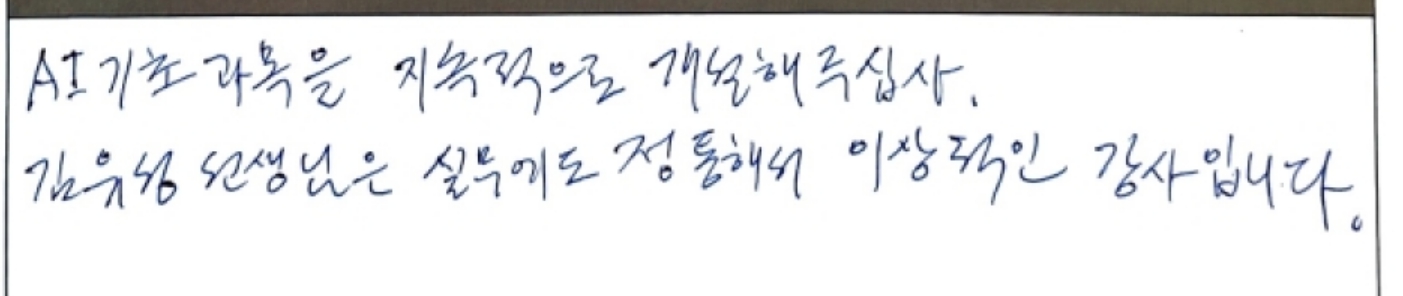 AI기초과목을 지속적으로 개설해주십사.
김유성 선생님은 실무에도 정통해서 이상적인 강사입니다.